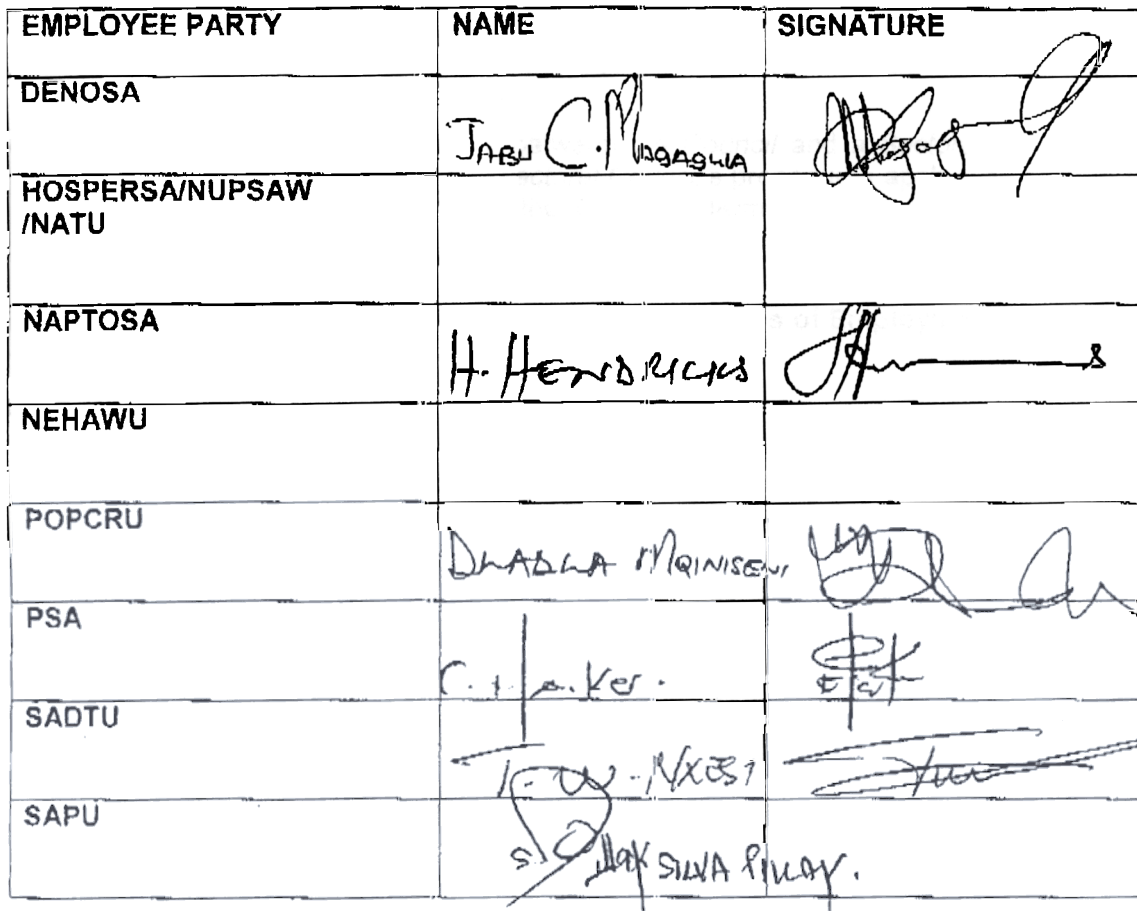 EMPLOYEE PARTY NAME SIGNATURE
DENOSA
JABU C.
HOSPERSA/NUPSAW
/NATU
NAPTOSA
H. HENDRICKS
NEHAWU
POPCRU
DLADLA MQINISENI
PSA
C.
SADTU
T. W. NXESI
SAPU
SILVA PILLAY.